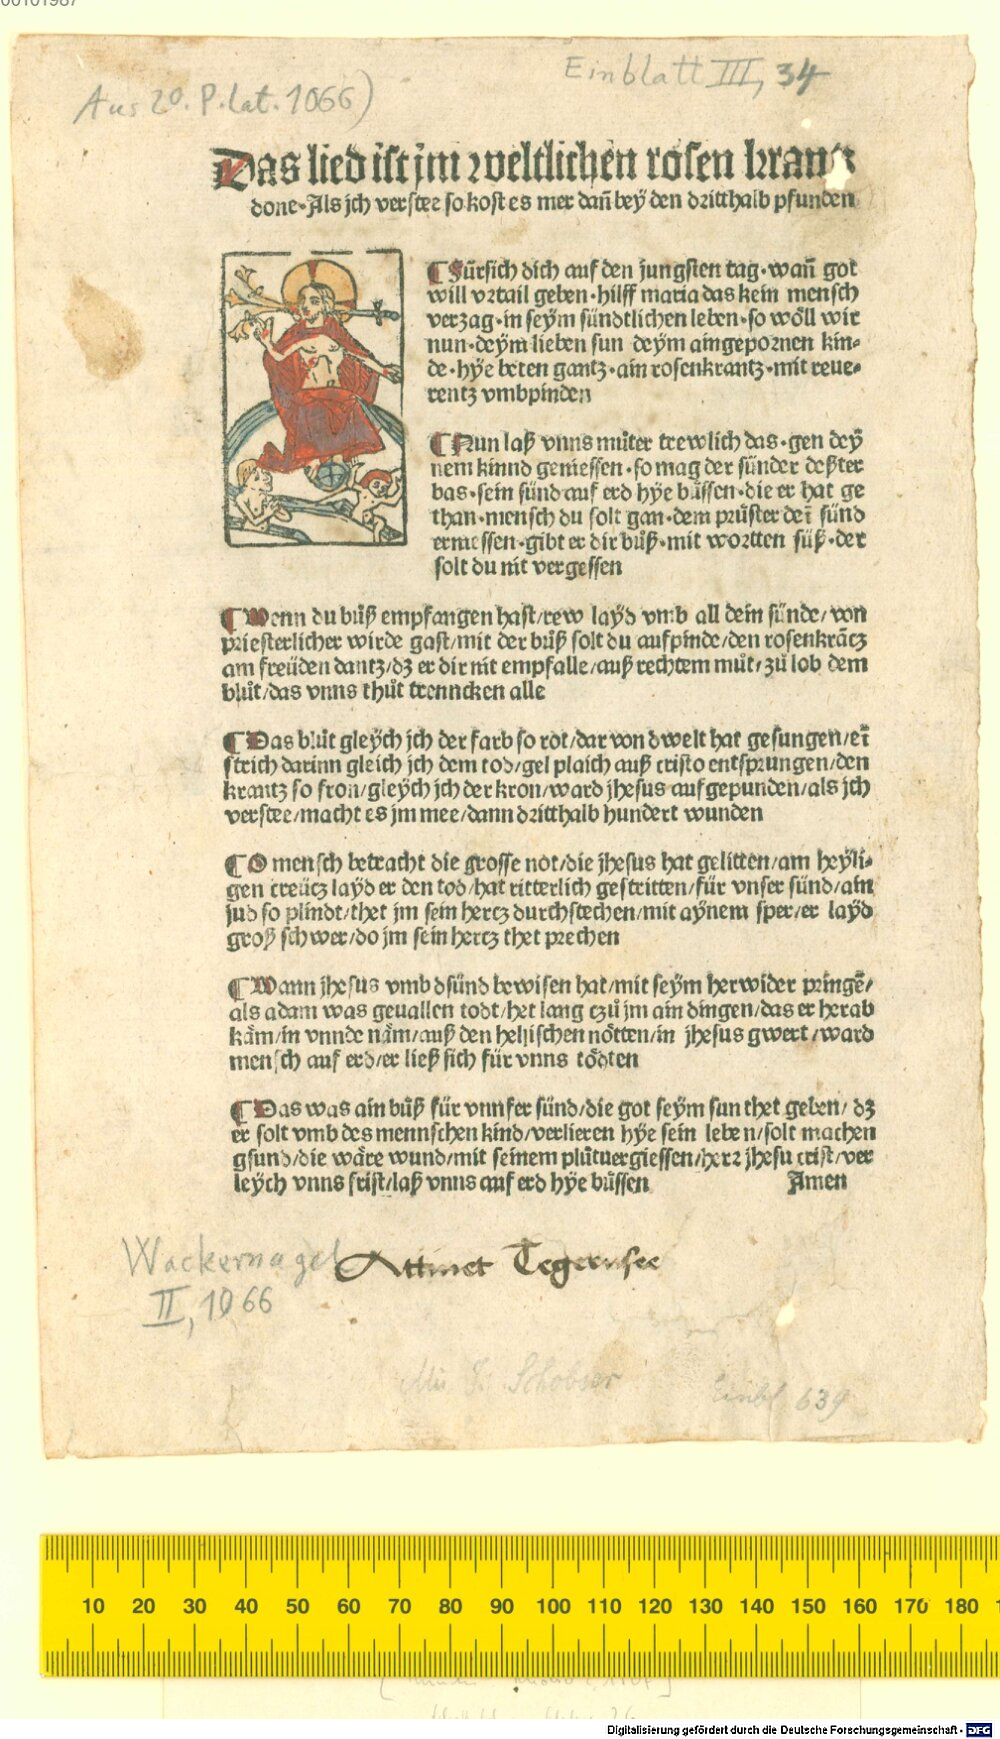 00101987
Einblatt III, 34
Aus 2°. P. lat. 1066)
Das lied ist jm weltlichen rosen krantz
done·Als jch verstee so kost es mer dañ beÿ den dritthalb pfunden
¶ Fürsich dich auf den jungsten tag·wañ got
will vrtail geben·hilff maria das kein mensch
verzag·in seÿm sündtlichen leben·so wöll wir
nun·deÿm lieben sun deÿm aingepornen kin-
de·hÿe beten gantz·ain rosenkrantz·mit reue-
rentz vmbpinden
¶ Nun laß vnns můter trewlich das·gen deÿ
nem kinnd geniessen·so mag der sünder deßter
bas·sein sünd auf erd hÿe bůssen·die er hat ge
than·mensch du solt gan·dem prüster deī sünd
ermessen·gibt er dir bůß·mit wortten süß·der
solt du nit vergessen
¶ Wenn du bůß empfangen hast/rew laÿd vmb all dein sünde/von
priesterlicher wirde gast/mit der bůß solt du aufpinde/den rosenkrātz
am freüden dantz/dz er dir nit empfalle/auß rechtem můt/zů lob dem
blůt/das vnns thůt trenncken alle
¶ Das blůt gleÿch jch der farb so rot/dar von d welt hat gesungen/eī
strich darinn gleich jch dem tod/gel plaich auß cristo entsprungen/den
krantz so fron/gleÿch jch der kron/ward jhesus aufgepunden/als jch
verstee/macht es jm mee/dann dritthalb hundert wunden
¶ O mensch betracht die grosse not/die jhesus hat gelitten/am heÿli-
gen creütz laÿd er den tod/hat ritterlich gestritten/für vnser sünd/ain
jud so plindt/thet jm sein hertz durchstechen/mit aÿnem sper/er laÿd
groß schwer/do jm sein hertz thet prechen
¶ Wann jhesus vmb d sünd bewisen hat/mit seÿm herwider pringē/
als adam was geuallen todt/het lang czů jm ain dingen/das er herab
käm/in vnnde näm/auß den hellischen nötten/in jhesus gwert/ward
mensch auf erd/er ließ sich für vnns tödten
¶ Das was ain bůß für vnnser sünd/die got seÿm sun thet geben/dz
er solt vmb des mennschen kind/verlieren hÿe sein leben/solt machen
gsund/die wäre wund/mit seinem plůtuergiessen/herr jhesu crist/ver
leÿch vnns frist/laß vnns auf erd hÿe bůssen Amen
Wackernagel Attinet Tegernsee
II, 1066
Mü: J. Schobser Einbl 639
10 20 30 40 50 60 70 80 90 100 110 120 130 140 150 160 170 180
Digitalisierung gefördert durch die Deutsche Forschungsgemeinschaft - DFG